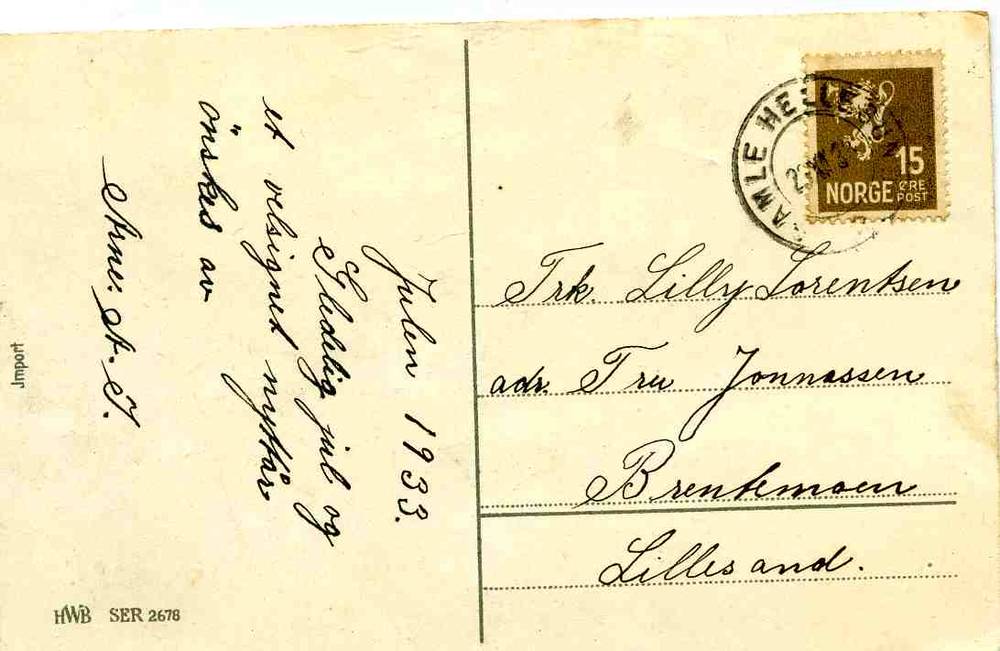 Julen 1933.
Gledelig jul og
et velsignet nyttår
önskes av
Arne. A. J.
Import
HWB SER 2678
15
NORGE ØRE
POST
Frk. Lilly Lorentsen
adr. Fru Jonnassen
Brentemoen
Lillesand.